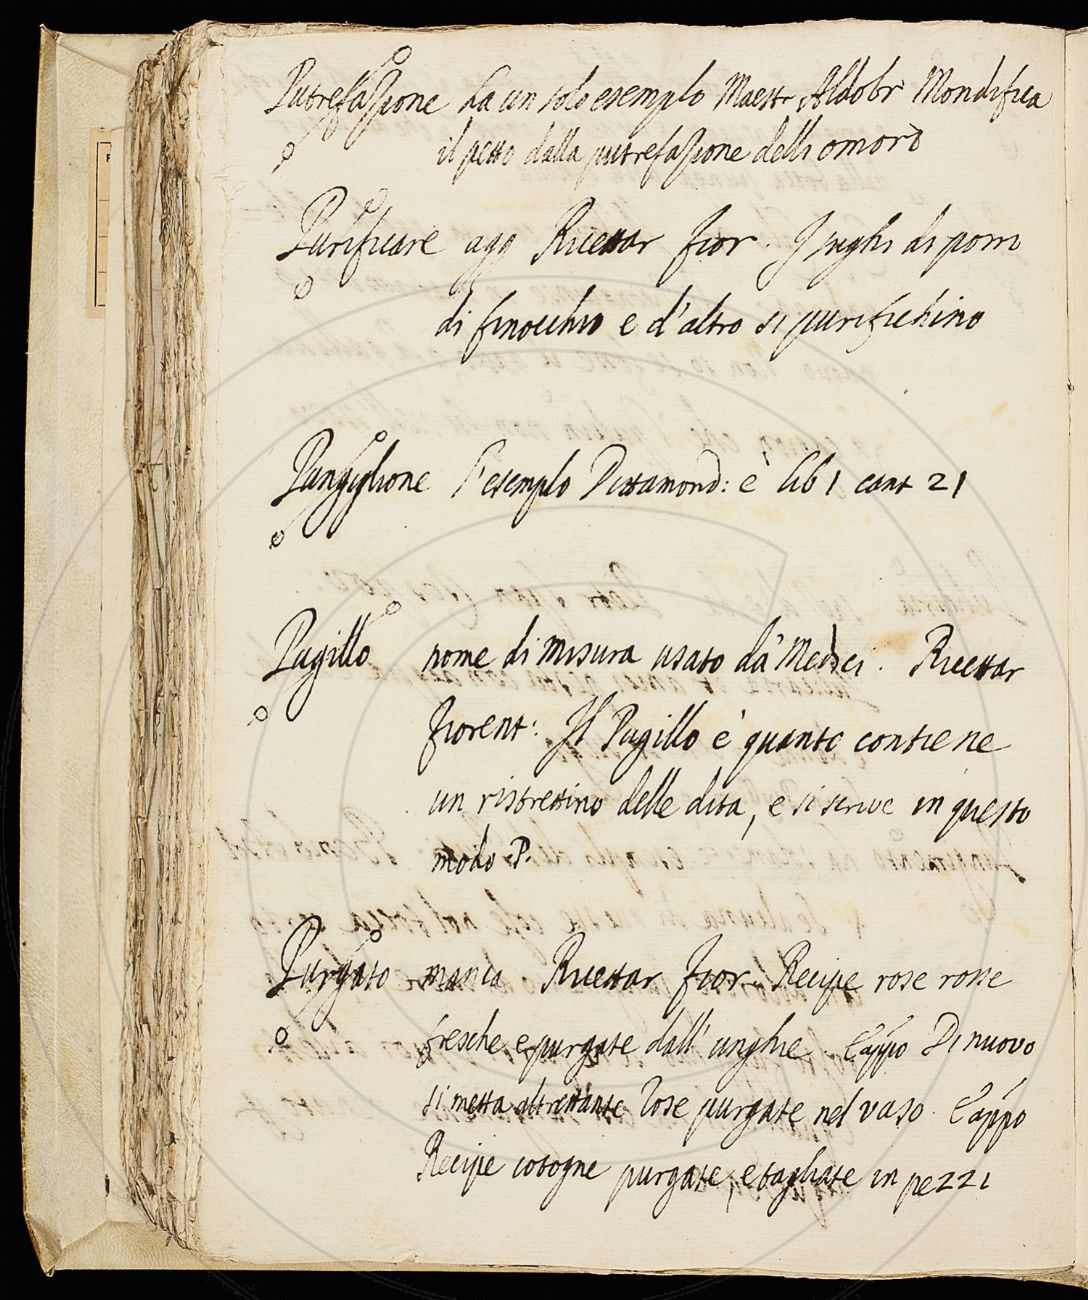 Putrefazione ha un solo esemplo Maestr Aldobr Mondifica
il petto dalla putrefazione delli omori
Purificare agg Ricettar fior. I sughi di pomi
di finocchio e d'altro si purifichino
Pungiglione l'esemplo Dittamond: è lib 1 cant 21
Pugillo nome di misura usato da' Medici. Ricettar
fiorent: Il Pugillo è quanto contiene
un ristrettino delle dita, e si scrive in questo
modo P.
Purgato manca. Ricettar fior. Recipe rose rosse
fresche e purgate dall' unghie. E appo Di nuovo
si metta altrettante Rose purgate nel vaso. E appo
Recipe cotogne purgate, e tagliate in pezzi